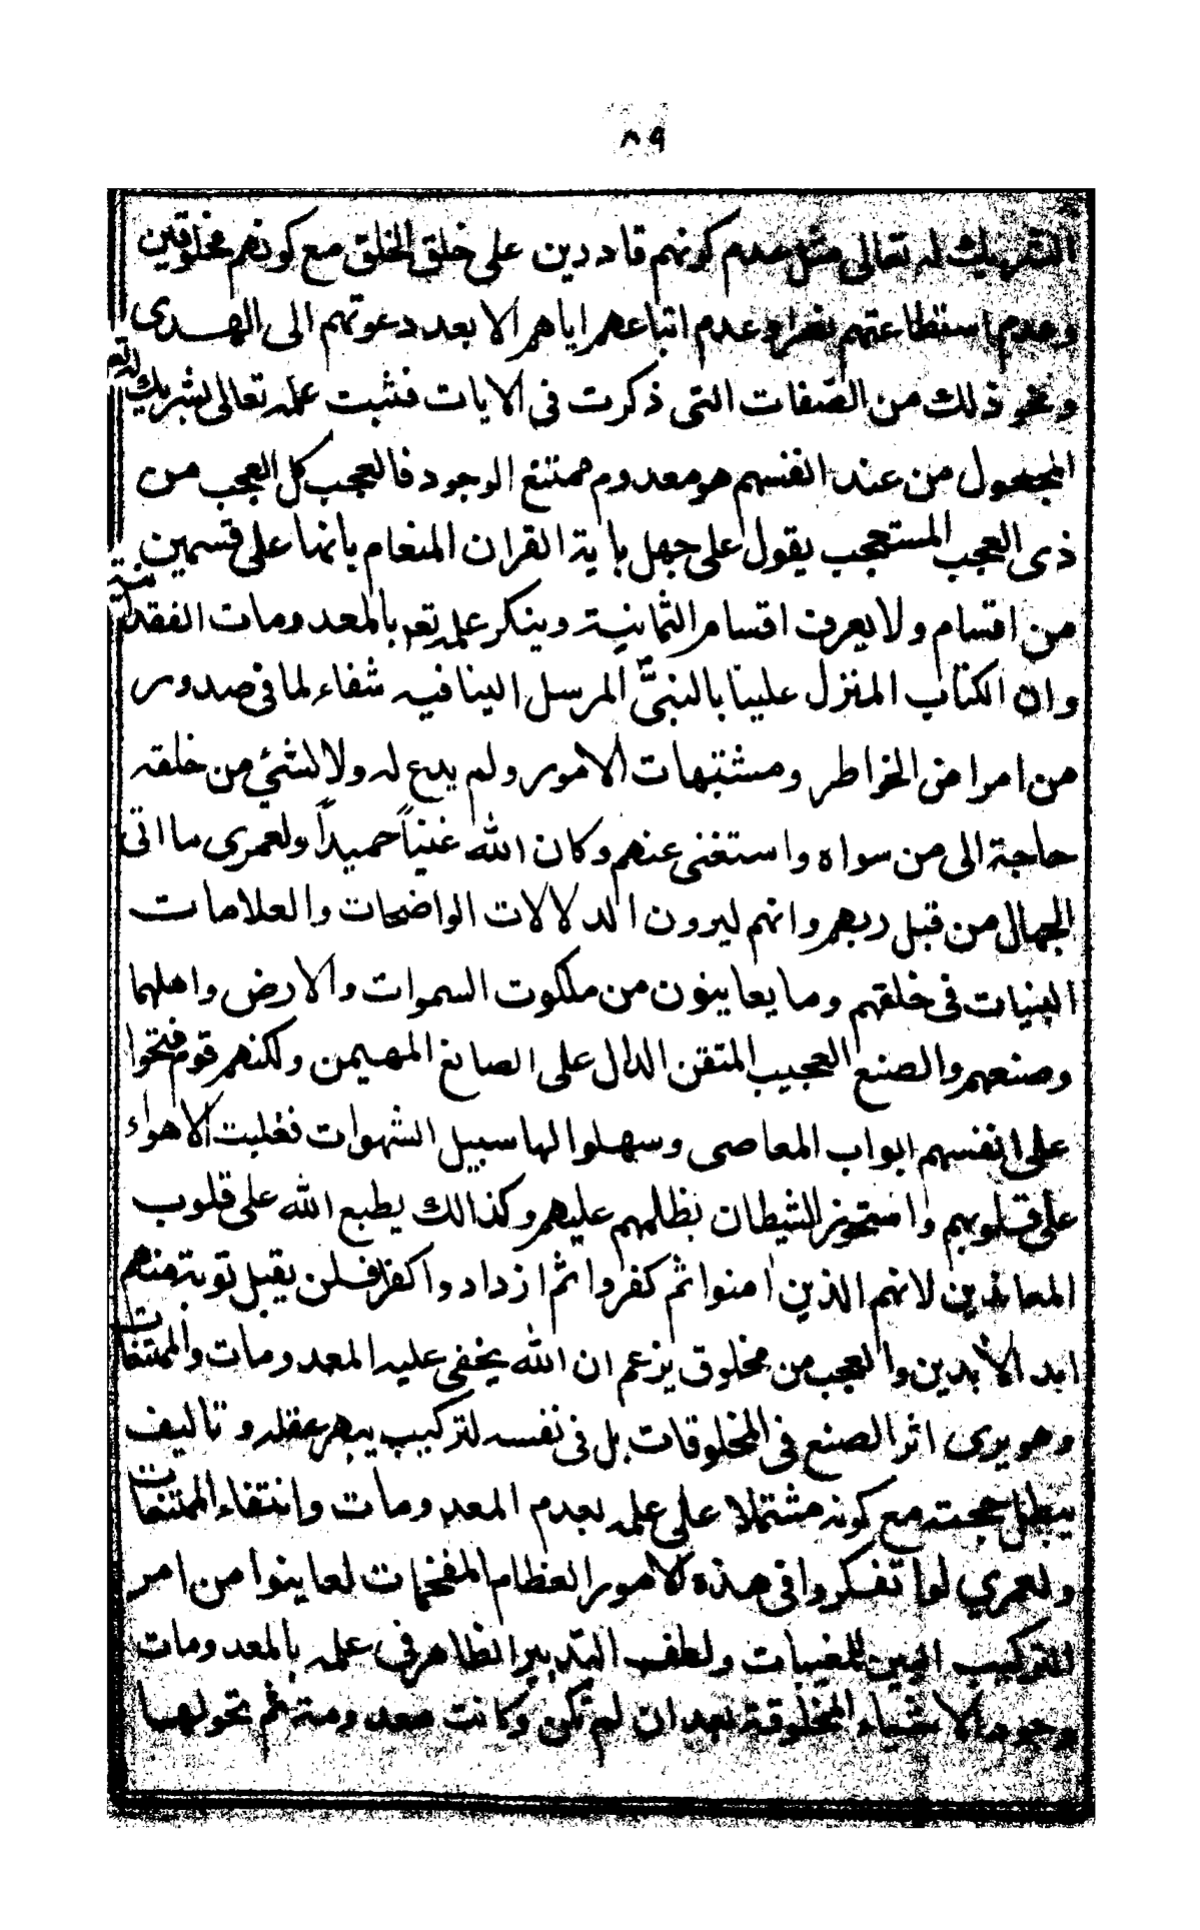 ٨٩
الشريك له تعالى مثل عدم كونهم قادرين على خلق الخلق مع كونهم مخلوقين
وعدم استطاعتهم نصرا وعدم اتباعهم اياهم الا بعد دعوتهم الى الهدى
ونحو ذلك من الصفات التى ذكرت فى الايات فثبت علمه تعالى بشريك له تع
المجعول من عند انفسهم هو معدوم ممتنع الوجود فالعجب كل العجب من
ذى العجب المستعجب يقول على جهل باية القران المنعام بانها على قسمين
من اقسام ولا يعرف اقسام الثمانية وينكر علمه تعر بالمعدومات
وان الكتاب المنزل علينا بالنبىّ المرسل الينا فيه شفاء لما فى صدور
من امراض الخواطر ومشتبهات الامور ولم يدع له ولا لشئ من خلقه
حاجة الى من سواه واستغنى عنهم وكان الله غنياً حميداً ولعمرى ما اتى
الجهال من قبل ربهم وانهم ليرون الدلالات الواضحات والعلامات
البنيات فى خلقهم وما يعاينون من ملكوت السموات والارض واهلهما
وصنعهم والصنع العجيب المتقن الدال على الصانع المهيمن ولكنهم قوم فتحوا
على انفسهم ابواب المعاصى وسهلوا لها سبيل الشهوات فغلبت الاهواء
على قلوبهم واستحوز الشيطان بظلمهم عليهم وكذالك يطبع الله على قلوب
المعاندين لانهم الذين امنوا ثم كفروا ثم ازدادوا كفرا فلن يقبل توبة منهم
ابد الابدين والعجب من مخلوق يزعم ان الله يخفى عليه المعدومات والممتنعات
وهو يرى اثر الصنع فى المخلوقات بل فى نفسه لتركيب يبهر عقله وتاليف
يبطل حجته مع كونه مشتملا على علمه بعدم المعدومات وانتفاء الممتنعات
ولعمري لوا تفكروا فى هذه الامور العظام المفخمات لعاينوا من امر
التركيب البين للمغيبات ولطف التدبير الظاهر فى علمه بالمعدومات
وجود الاشياء المخلوقة بعد ان لم تكن وكانت معدومة ثم تحولها